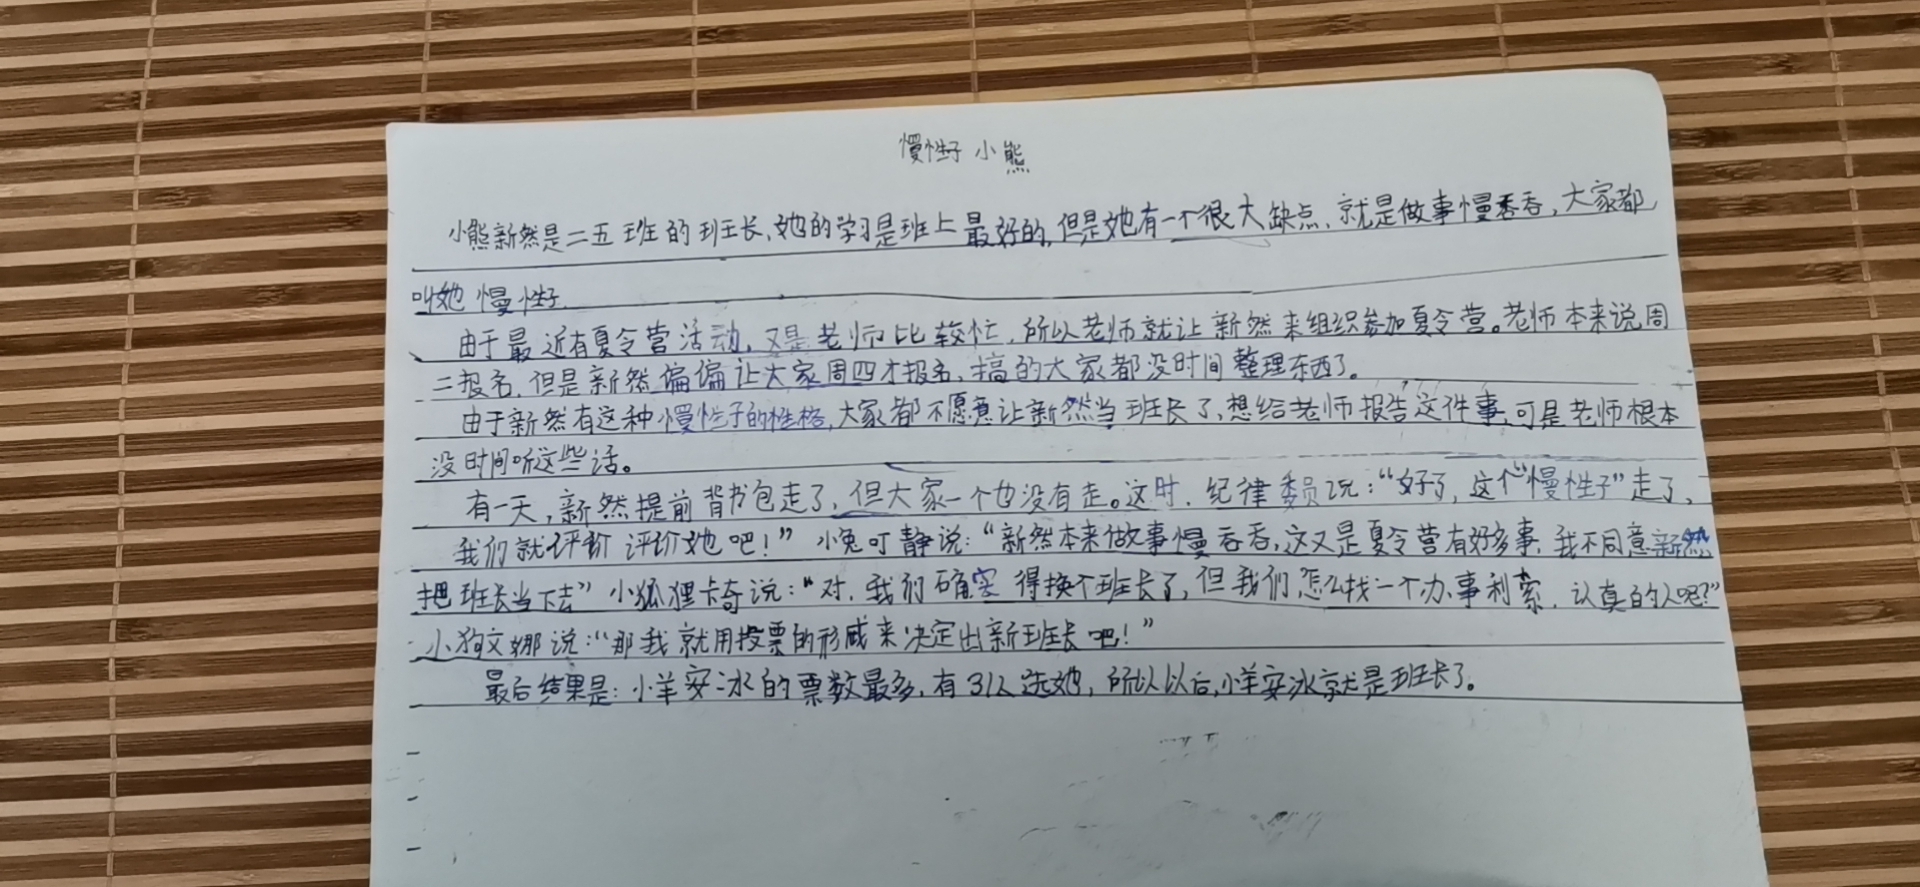 慢性子 小熊
小熊新然是二五班的班长,她的学习是班上最好的,但是她有一个很大缺点,就是做事慢吞吞,大家都
叫她慢性子.
由于最近有夏令营活动,又是老师比较忙,所以老师就让新然来组织参加夏令营。老师本来说周
二报名,但是新然偏偏让大家周四才报名,搞的大家都没时间整理东西了。
由于新然有这种慢性子的性格,大家都不愿意让新然当班长了,想给老师报告这件事,可是老师根本
没时间听这些话。
有一天,新然提前背书包走了,但大家一个也没有走。这时,纪律委员说:“好了,这个“慢性子”走了,
我们就评价评价她吧!”小兔叮静说:“新然本来做事慢吞吞,这又是夏令营有好多事,我不同意新然
把班长当下去”小狐狸卡奇说:“对,我们确实得换个班长了,但我们怎么找一个办事利索,认真的人呢?”
小狗文娜说:“那我就用投票的形咸来决定出新班长吧!”
最后结果是:小羊安冰的票数最多,有31人选她,所以以后,小羊安冰就是班长了。